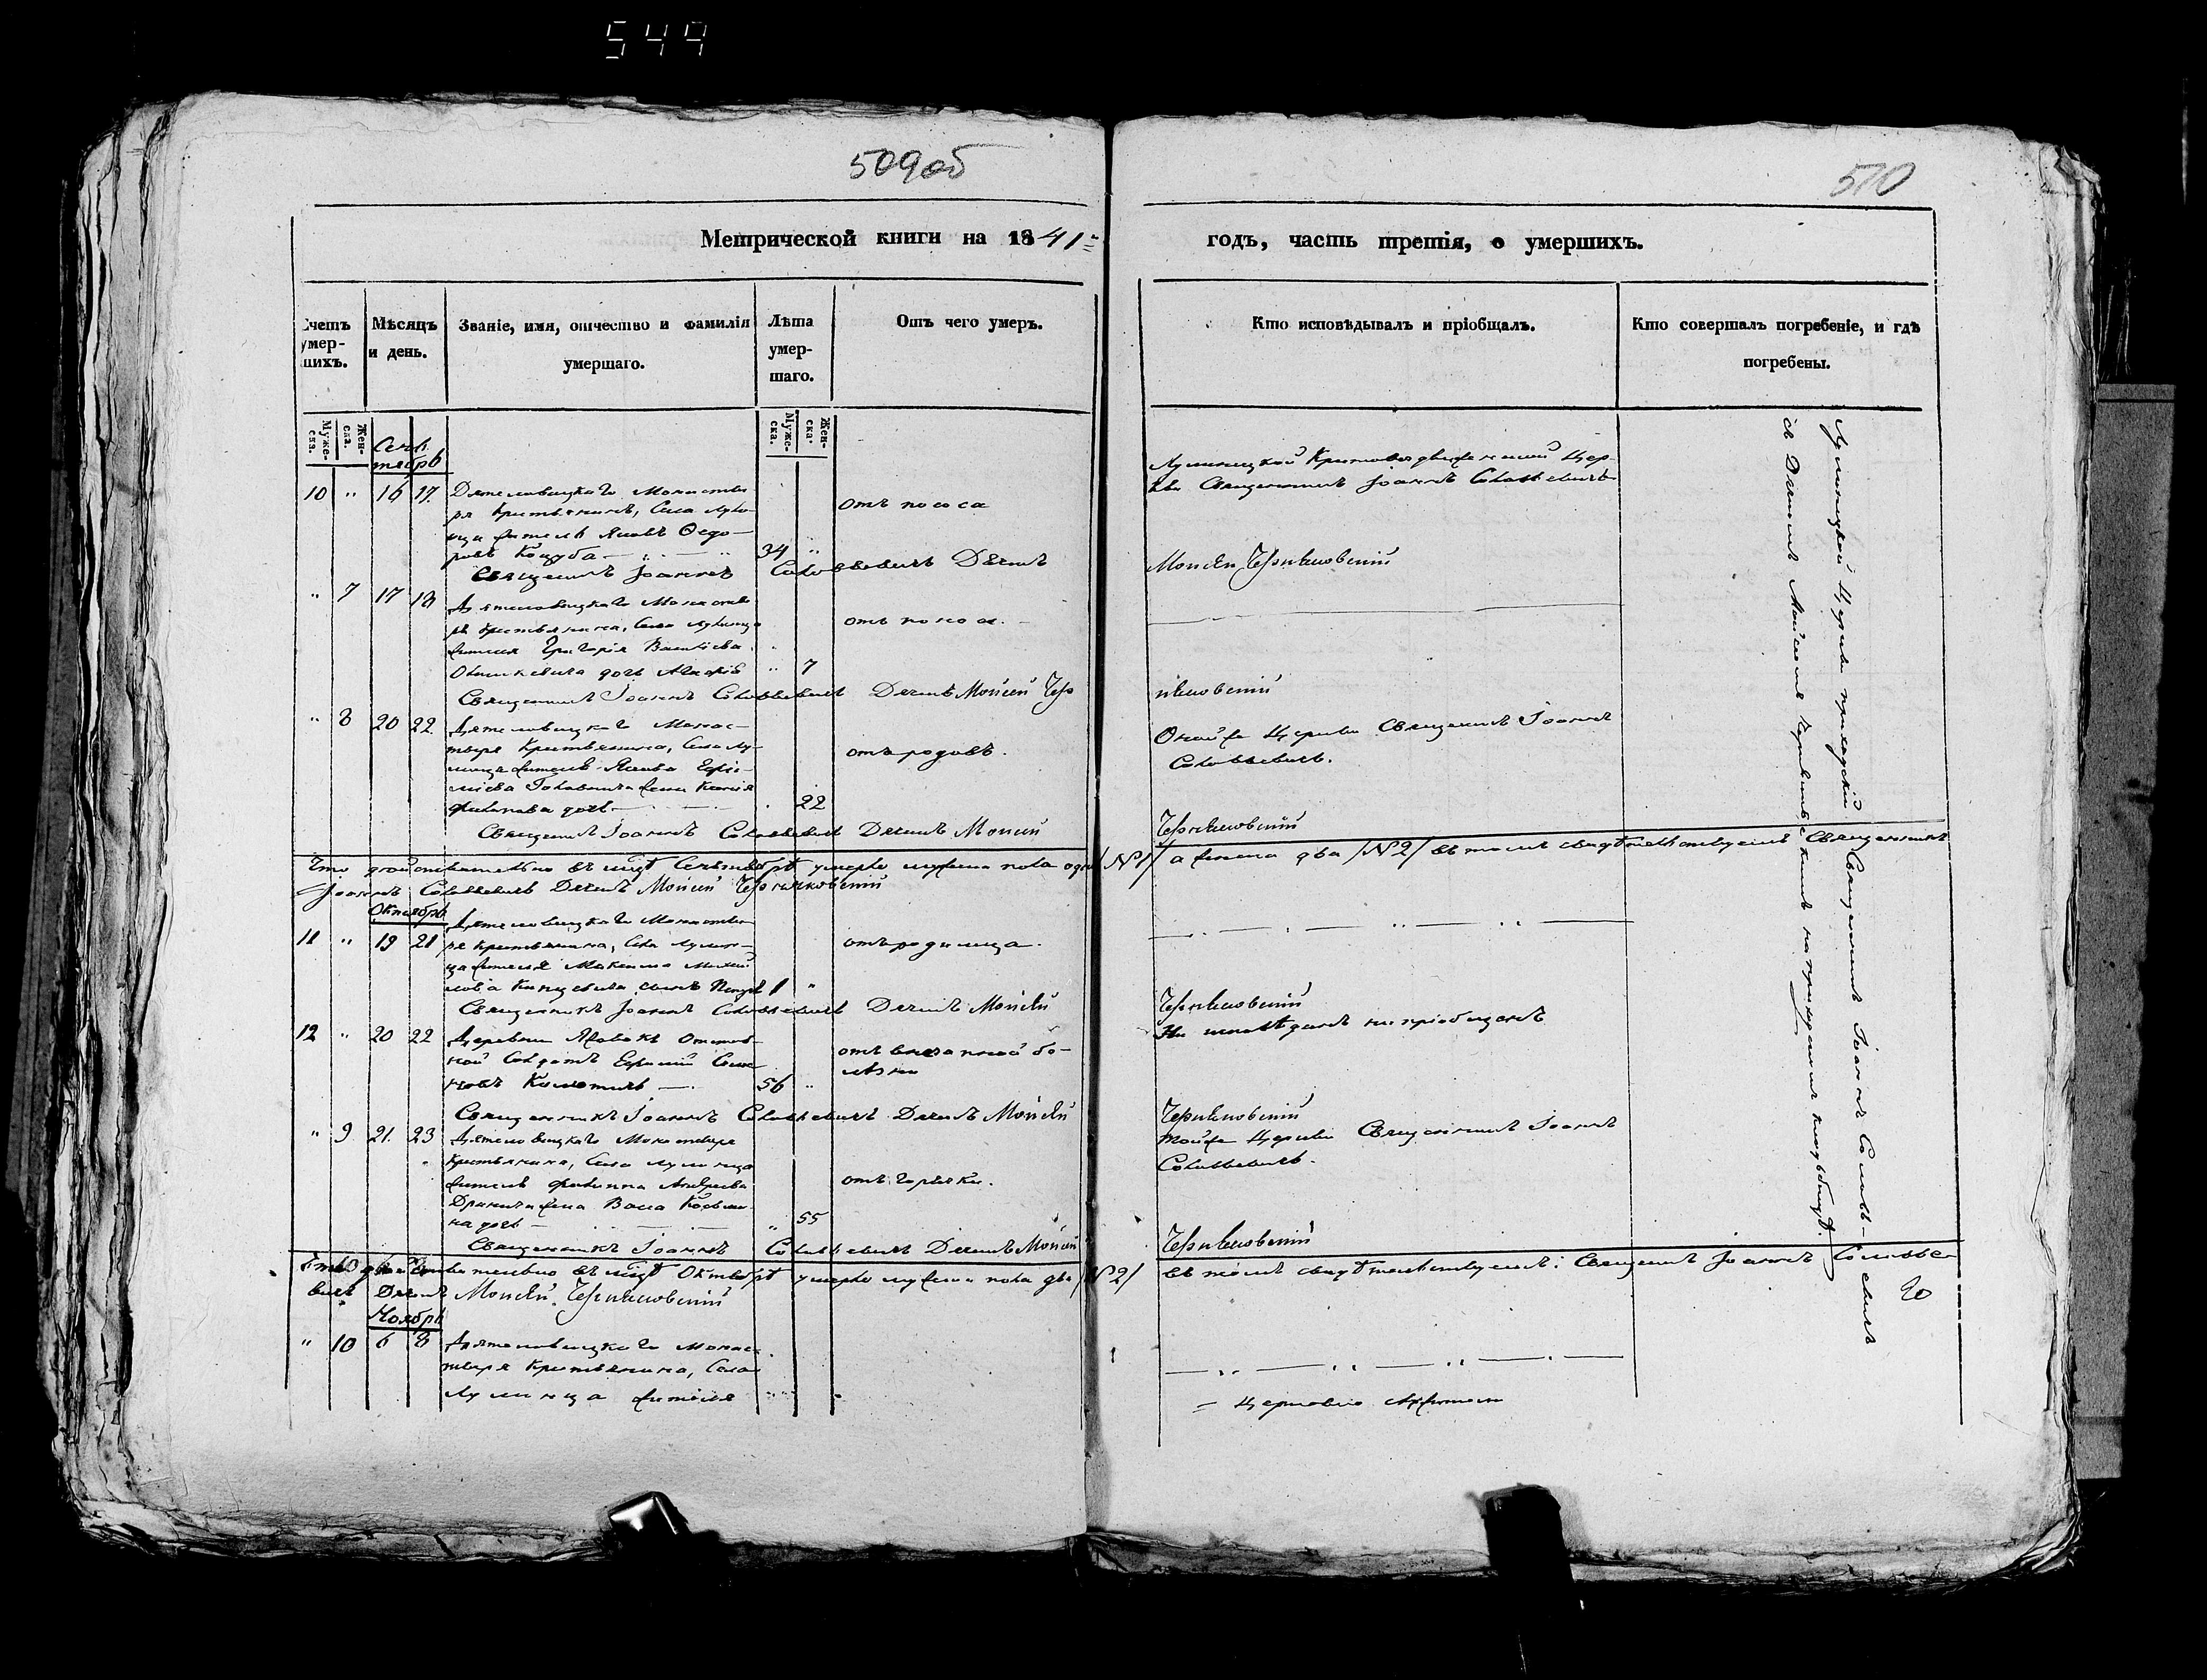 549
509об
510
Метрической книги на 1841=
годъ, часть третія, о умершихъ.
Счетъ умер-шихъ.
Мѣсяцъ и день.
Званіе, имя, отчество и фамилія умершаго.
Лѣта умер-шаго.
Отъ чего умеръ.
Кто исповѣдывалъ и пріобщалъ.
Кто совершалъ погребеніе, и гдѣ погребены.
Муже-ска.
Жен-ска.
Муже-ска.
Жен-ска.
Сен-
тябрь
10 " 16 17. Дятеловицкаго Монасты
ря крестьянинъ, Села Лули-
нца житель Яковъ Ѳедо-
ровъ Коцуба 34 "
отъ поноса
Лулинецкой Крестовоздвиженской Цер-
кви Священникъ Іоаннъ Соловьевичъ
Священникъ Іоаннъ Соловьевичъ Дьячекъ
Моисей Черняковскій
" 7 17 18 Дятеловицкаго Монасты
ря крестьянина, Села Лулинца
жителя Григорія Васильева
дочь " 7
отъ поноса.
Священникъ Іоаннъ Соловьевичъ Дьячекъ Моисей Чер
няковскій
" 8 20 22 Дятеловицкаго Монас-
тыря Крестьянина, Села Лу-
нинца житель Якова
жена
Филипова дочь 22
отъ родовъ.
Оной же Церкви Священникъ Іоаннъ
Соловьевичъ.
Священникъ Іоаннъ Соловьевичъ Дьячекъ Моисей
Черняковскій
Что дѣйствительно въ мцѣ Сентябрѣ умерло мужеска пола одинъ /№1/ а женска два /№2/ въ томъ свидѣтельствуемъ Священникъ
Іоаннъ Соловьевичъ Дьячекъ Моисей Черняковскій
Октябрь
11 " 19 21 Дятеловицкаго Монасты-
ря крестьянина, Села Лулин-
ца жителя Максима Михай
лова сынъ Петръ 1 "
отъ родимца.
Священникъ Іоаннъ Соловьевичъ Дьячекъ Моисей
Черняковскій
12 " 20 22 Деревни Язвокъ Отстав-
ной Солдатъ Ефимій Семе
новъ 56 "
отъ внезапной бо-
лѣзни
Не исповѣданъ ни пріобщенъ
Священникъ Іоаннъ Соловьевичъ Дьячекъ Моисей
Черняковскій
" 9 21. 23 Дятеловицкаго Монастыря
Крестьянина, Села Лулинца
житель Филиппа Андреева
жена Васа
на дочь " 55
отъ горячки.
Тойже Церкви Священникъ Іоаннъ
Соловьевичъ.
Священникъ Іоаннъ Соловьевичъ Дьячекъ Моисей
Черняковскій
Что дѣйствительно въ мцѣ Октябрѣ умерло мужеска пола два /№2/ въ томъ свидѣтельствуемъ: Священникъ Іоаннъ Соловье-
вичъ Дьячекъ Моисей Черняковскій
Ноябрь
" 10 6 8 Дятеловицкаго Монас-
тыря Крестьянина, Села
Лулинца жителя
Церковію
20
Лулинецкой Церкви приходскій Священникъ Іоаннъ Соловь-евичъ
съ Дьячкомъ Моисеемъ Черняковскимъ на приходскомъ кладбищѣ.